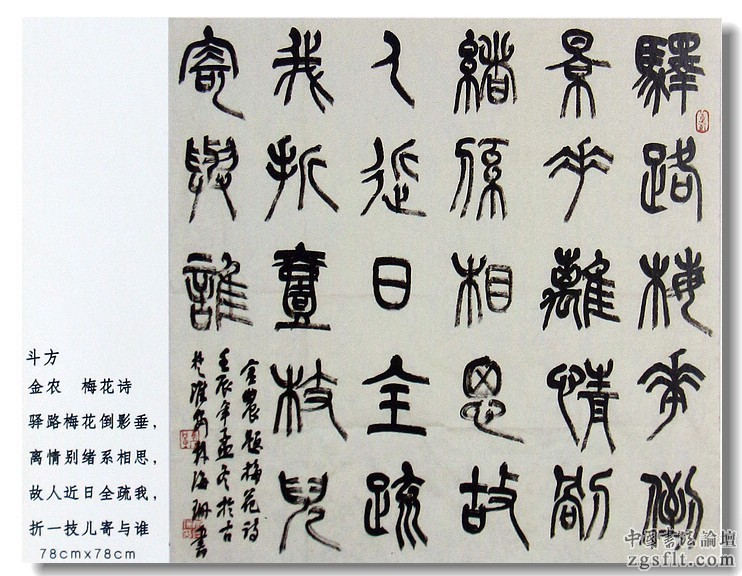 驛路梅華倒
景垂離情別
緒係相思故
人近日全疏
我折壹枝兒
寄與誰
金農題梅花詩
壬辰年孟冬於古
楚淮安海珊書
斗方
金农 梅花诗
驿路梅花倒影垂，
离情别绪系相思，
故人近日全疏我，
折一技儿寄与谁
78cmx78cm
中國書法論壇
zgsflt.com